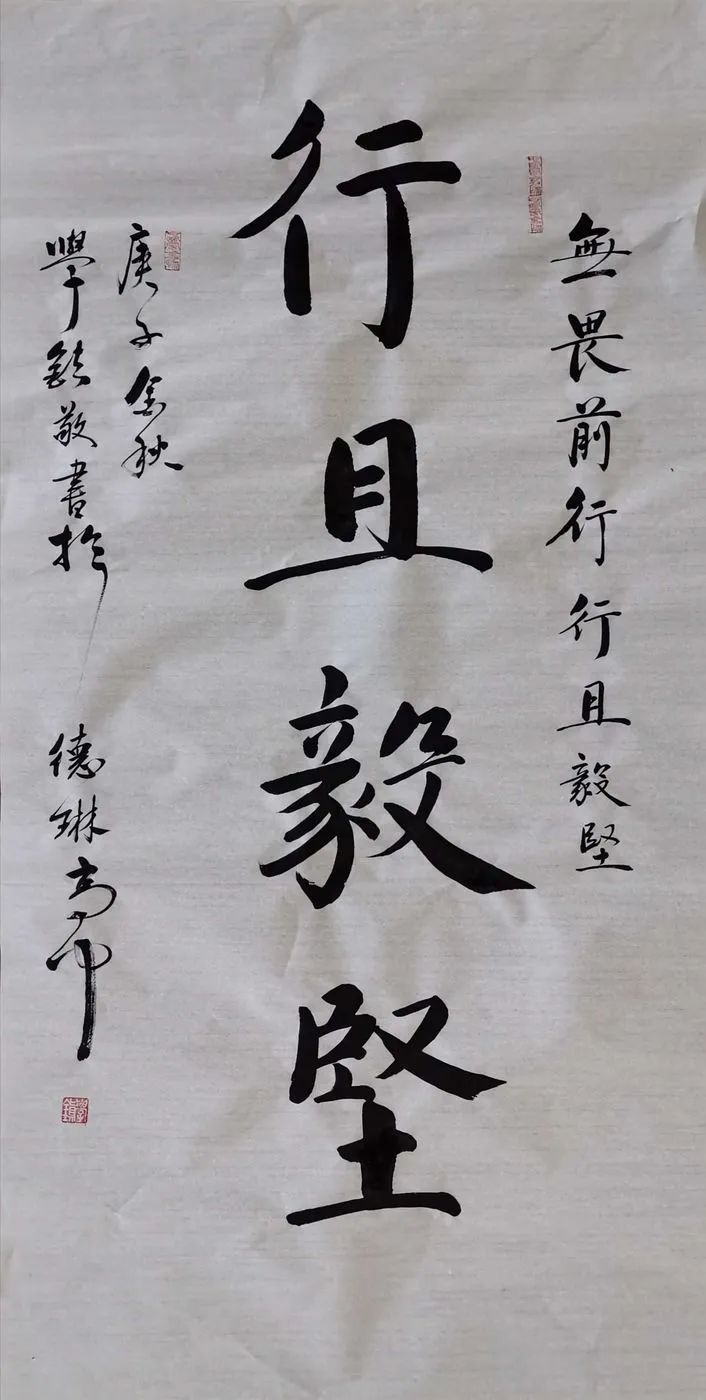 無畏前行行且毅堅
行且毅堅
庚子金秋
學鉄敬書於
德琳高中